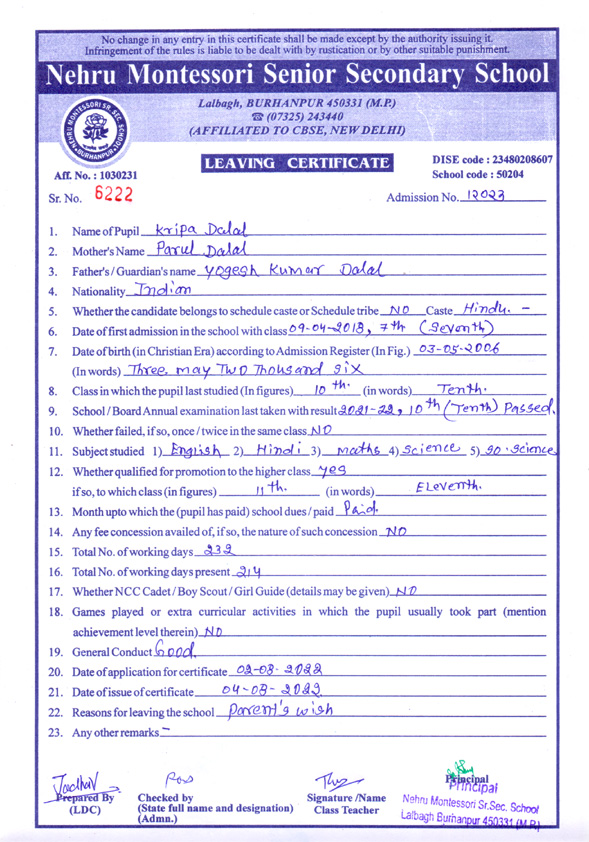 No change in any entry in this certificate shall be made except by the authority issuing it.
Infringement of the rules is liable to be dealt with by rustication or by other suitable punishment.
Nehru Montessori Senior Secondary School
Lalbagh, BURHANPUR 450331 (M.P.)
☎ (07325) 243440
(AFFILIATED TO CBSE, NEW DELHI)
NEHRU MONTESSORI SR. SEC. SCHOOL
BURHANPUR
LEAVING CERTIFICATE
DISE code : 23480208607
School code : 50204
Aff. No. : 1030231
Sr. No. 6222
Admission No. 12023
1. Name of Pupil Kripa Dalal
2. Mother's Name Parul Dalal
3. Father's / Guardian's name Yogesh Kumar Dalal
4. Nationality Indian
5. Whether the candidate belongs to schedule caste or Schedule tribe NO Caste Hindu. -
6. Date of first admission in the school with class 09-04-2018, 7th (Seventh)
7. Date of birth (in Christian Era) according to Admission Register (In Fig.) 03-05-2006
(In words) Three may Two Thousand six
8. Class in which the pupil last studied (In figures) 10th. (in words) Tenth.
9. School / Board Annual examination last taken with result 2021-22, 10th (Tenth) Passed.
10. Whether failed, if so, once / twice in the same class NO
11. Subject studied 1) English 2) Hindi 3) maths 4) science 5) so. science
12. Whether qualified for promotion to the higher class yes
if so, to which class (in figures) 11th. (in words) Eleventh.
13. Month upto which the (pupil has paid) school dues / paid Paid.
14. Any fee concession availed of, if so, the nature of such concession NO
15. Total No. of working days 232
16. Total No. of working days present 214
17. Whether NCC Cadet / Boy Scout / Girl Guide (details may be given) NO
18. Games played or extra curricular activities in which the pupil usually took part (mention
achievement level therein) NO
19. General Conduct Good.
20. Date of application for certificate 02-08-2022
21. Date of issue of certificate 04-08-2022
22. Reasons for leaving the school parent's wish
23. Any other remarks -
Prepared By
(LDC)
Checked by
(State full name and designation)
(Admn.)
Signature /Name
Class Teacher
Principal
Principal
Nehru Montessori Sr.Sec. School
Lalbagh Burhanpur 450331 (M.P.)